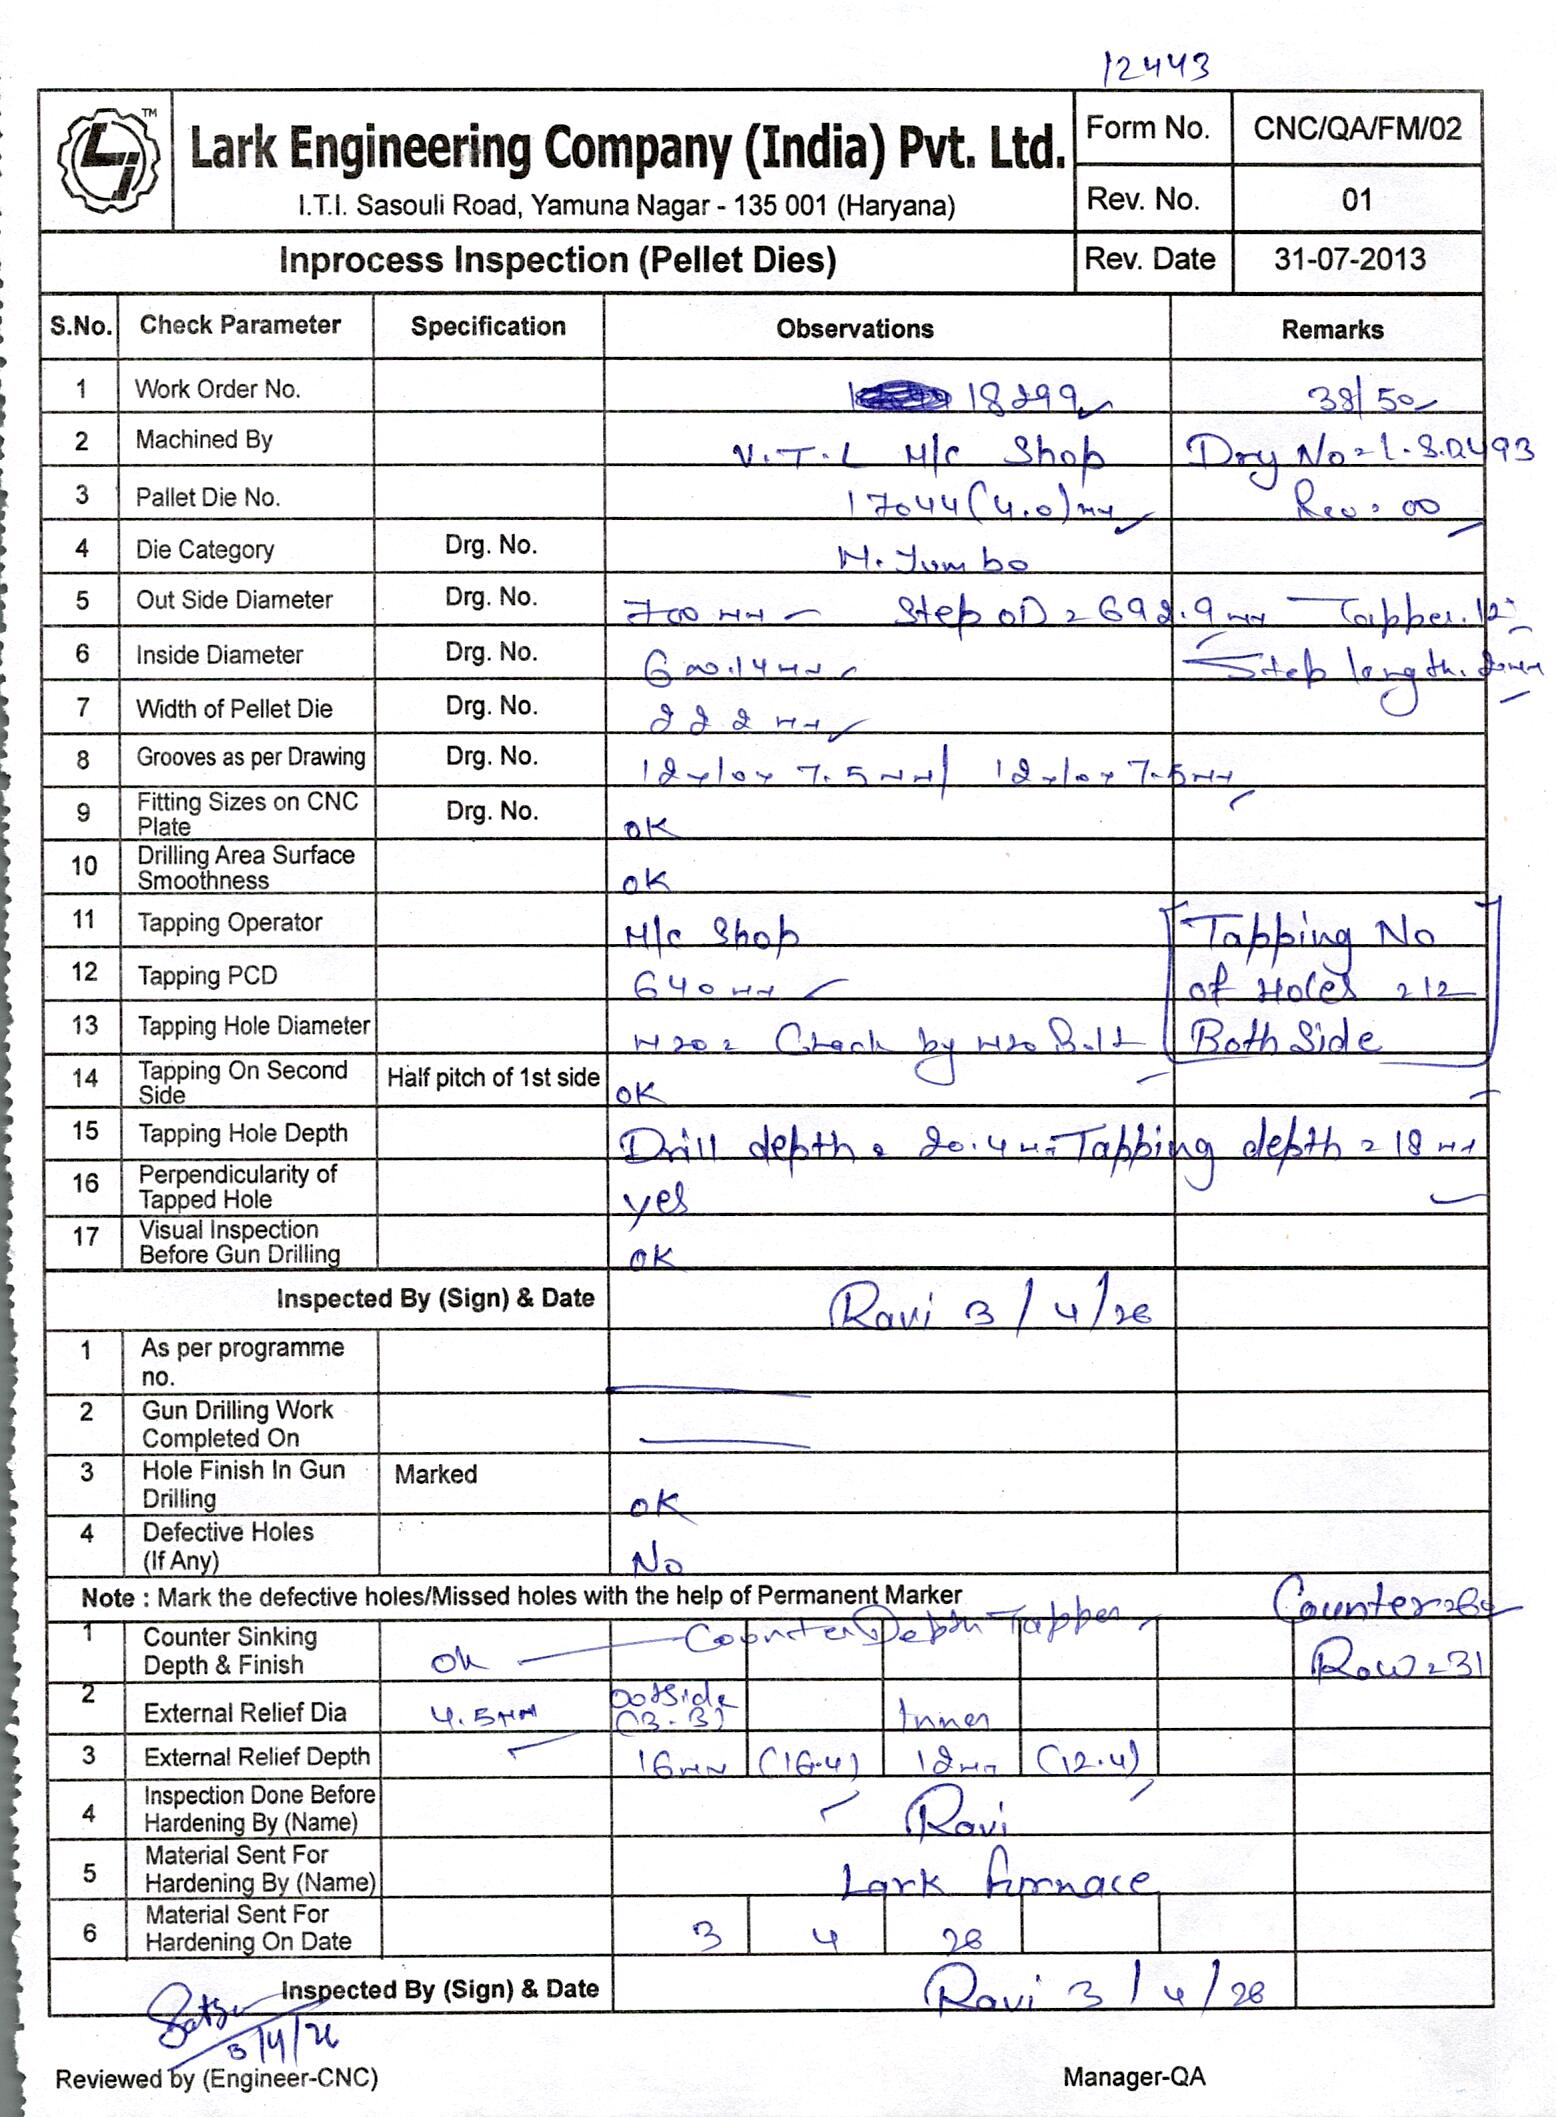 12443
TM
Lark Engineering Company (India) Pvt. Ltd.
I.T.I. Sasouli Road, Yamuna Nagar - 135 001 (Haryana)
Form No. CNC/QA/FM/02
Rev. No. 01
Inprocess Inspection (Pellet Dies) Rev. Date 31-07-2013
S.No. Check Parameter Specification Observations Remarks
1 Work Order No. 18299 38/50
2 Machined By V.T.L M/c Shop
3 Pallet Die No. 17044 (4.0) Rev. 00
4 Die Category Drg. No. M. Jumbo
5 Out Side Diameter Drg. No. 700 mm Step OD = 692.9 mm Tapper. 12°
6 Inside Diameter Drg. No. 600.14 mm Step length.
7 Width of Pellet Die Drg. No. 222 mm
8 Grooves as per Drawing Drg. No. 12x10x7.5mm/ 12x10x7.5mm
9 Fitting Sizes on CNC Plate Drg. No. OK
10 Drilling Area Surface Smoothness OK
11 Tapping Operator M/c Shop Tapping No
12 Tapping PCD 640 mm of Holes = 12
13 Tapping Hole Diameter M20 = Check by M20 Bolt Both Side
14 Tapping On Second Side Half pitch of 1st side OK
15 Tapping Hole Depth Drill depth = 20.4 mm Tapping depth = 18 mm
16 Perpendicularity of Tapped Hole yes
17 Visual Inspection Before Gun Drilling OK
Inspected By (Sign) & Date Ravi 3/4/26
1 As per programme no.
2 Gun Drilling Work Completed On
3 Hole Finish In Gun Drilling Marked OK
4 Defective Holes (If Any) No
Note : Mark the defective holes/Missed holes with the help of Permanent Marker
1 Counter Sinking Depth & Finish Ok Counter Depth Tapper Row = 31
2 External Relief Dia 4.5mm Outside Inner
3 External Relief Depth 16mm (16.4) 12mm (12.4)
4 Inspection Done Before Hardening By (Name) Ravi
5 Material Sent For Hardening By (Name) Lark furnace
6 Material Sent For Hardening On Date 3 4 26
Inspected By (Sign) & Date Ravi 3/4/26
3/4/26
Reviewed by (Engineer-CNC) Manager-QA